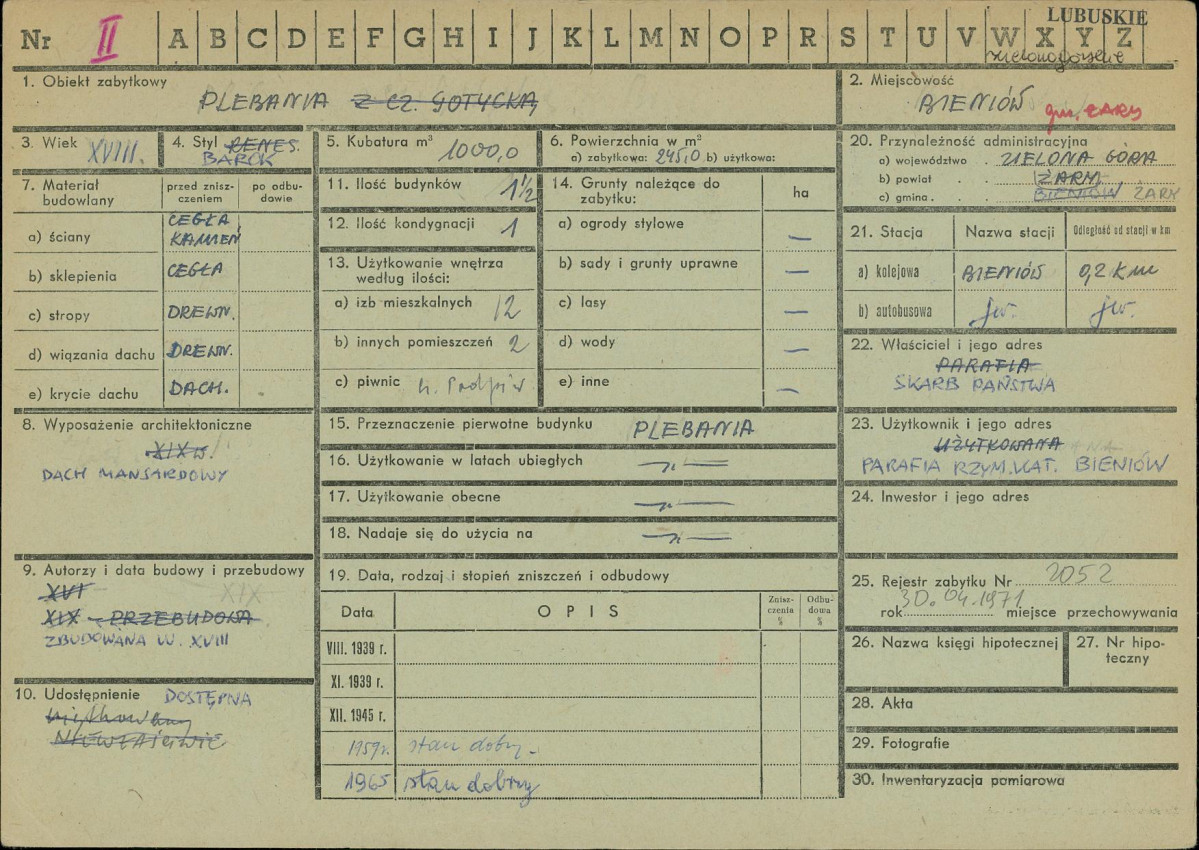 LUBUSKIE
Nr II A B C D E F G H I J K L M N O P R S T U V W X Y Z
zielonogórskie
1. Obiekt zabytkowy
PLEBANIA Z CZ. GOTYCKĄ
2. Miejscowość
BIENIÓW
gm. ŻARY
3. Wiek XVIII.
4. Styl RENES.
BAROK
5. Kubatura m³ 1000,0
6. Powierzchnia w m²
a) zabytkowa: 245,0 b) użytkowa:
7. Materiał budowlany
przed zniszczeniem
po odbudowie
a) ściany CEGŁA KAMIEŃ
b) sklepienia CEGŁA
c) stropy DREWN.
d) wiązania dachu DREWN.
e) krycie dachu DACH.
8. Wyposażenie architektoniczne
XIX w.
DACH MANSARDOWY
9. Autorzy i data budowy i przebudowy
XVI XIX
XIX - PRZEBUDOWA
ZBUDOWANA W. XVIII
10. Udostępnienie DOSTĘPNA
NIEWŁAŚCIWIE
11. Ilość budynków 1 1/2
12. Ilość kondygnacji 1
13. Użytkowanie wnętrza według ilości:
a) izb mieszkalnych 12
b) innych pomieszczeń 2
c) piwnic
14. Grunty należące do zabytku:
ha
a) ogrody stylowe —
b) sady i grunty uprawne —
c) lasy —
d) wody —
e) inne —
15. Przeznaczenie pierwotne budynku PLEBANIA
16. Użytkowanie w latach ubiegłych —„—
17. Użytkowanie obecne —„—
18. Nadaje się do użycia na —„—
19. Data, rodzaj i stopień zniszczeń i odbudowy
Data
OPIS
Zniszczenia %
Odbudowa %
VIII. 1939 r.
XI. 1939 r.
XII. 1945 r.
1959r. stan dobry.
1965 stan dobry
20. Przynależność administracyjna
a) województwo . ZIELONA GÓRA
b) powiat . ŻARY
c) gmina . . . BIENIÓW ŻARY
21. Stacja
Nazwa stacji
Odległość od stacji w km
a) kolejowa BIENIÓW 0,2 Km
b) autobusowa jw. jw.
22. Właściciel i jego adres
PARAFIA
SKARB PAŃSTWA
23. Użytkownik i jego adres
UŻYTKOWANA
PARAFIA RZYM. KAT. BIENIÓW
24. Inwestor i jego adres
25. Rejestr zabytku Nr 2052
rok 30.04.1971 miejsce przechowywania
26. Nazwa księgi hipotecznej
27. Nr hipoteczny
28. Akta
29. Fotografie
30. Inwentaryzacja pomiarowa